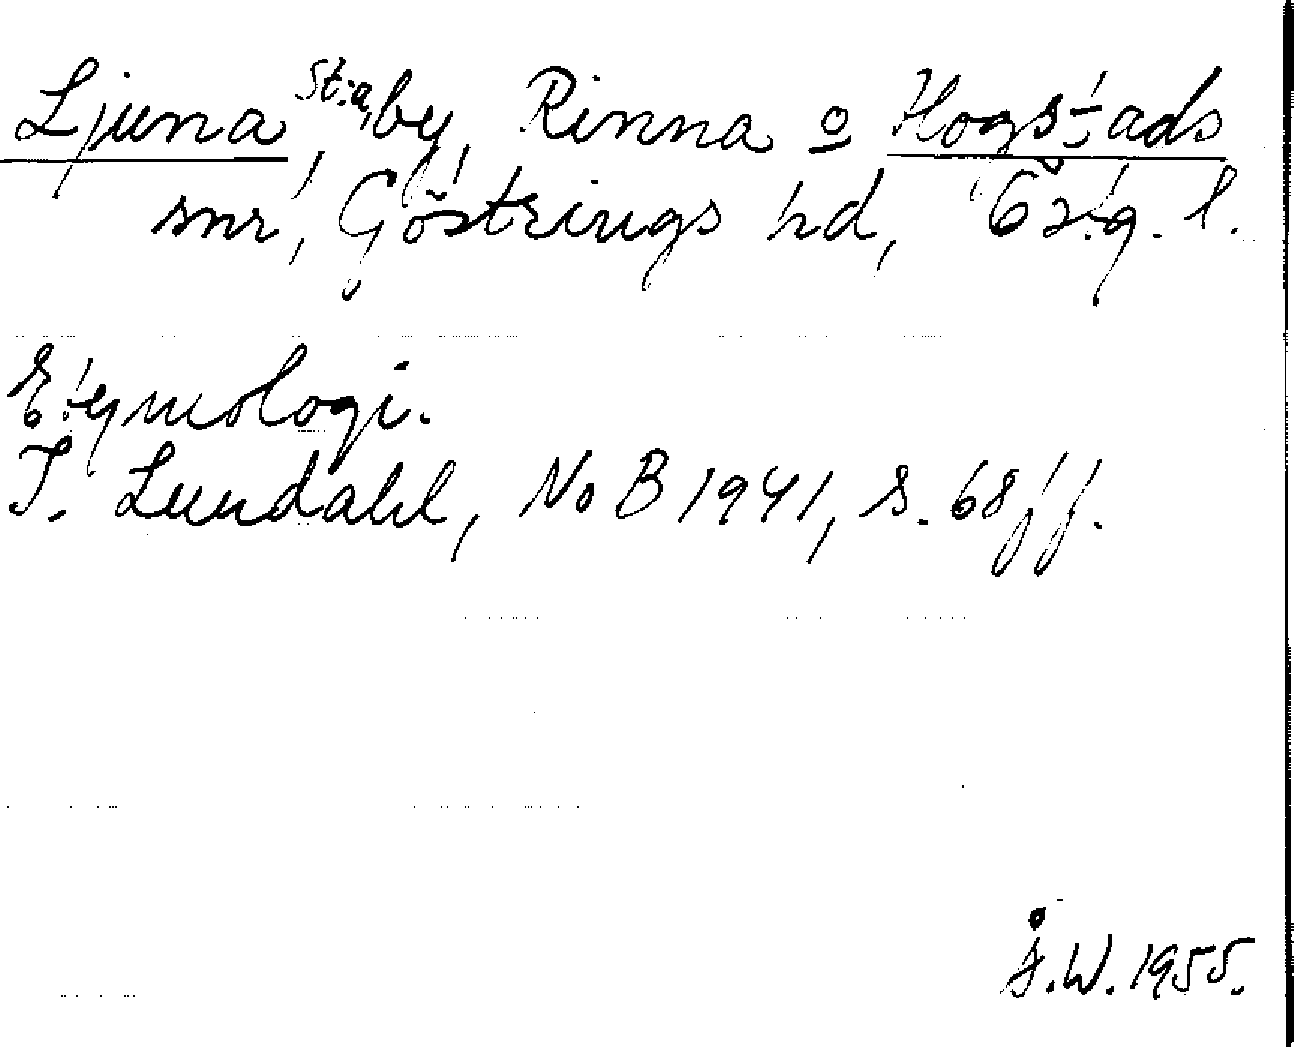 Ljuna, St:a, by, Rinna o Hogstads
snr, Göstrings hd, Ög. l.
Etymologi.
I. Lundahl, NoB 1941, s. 68 ff.
Å.W. 1955.